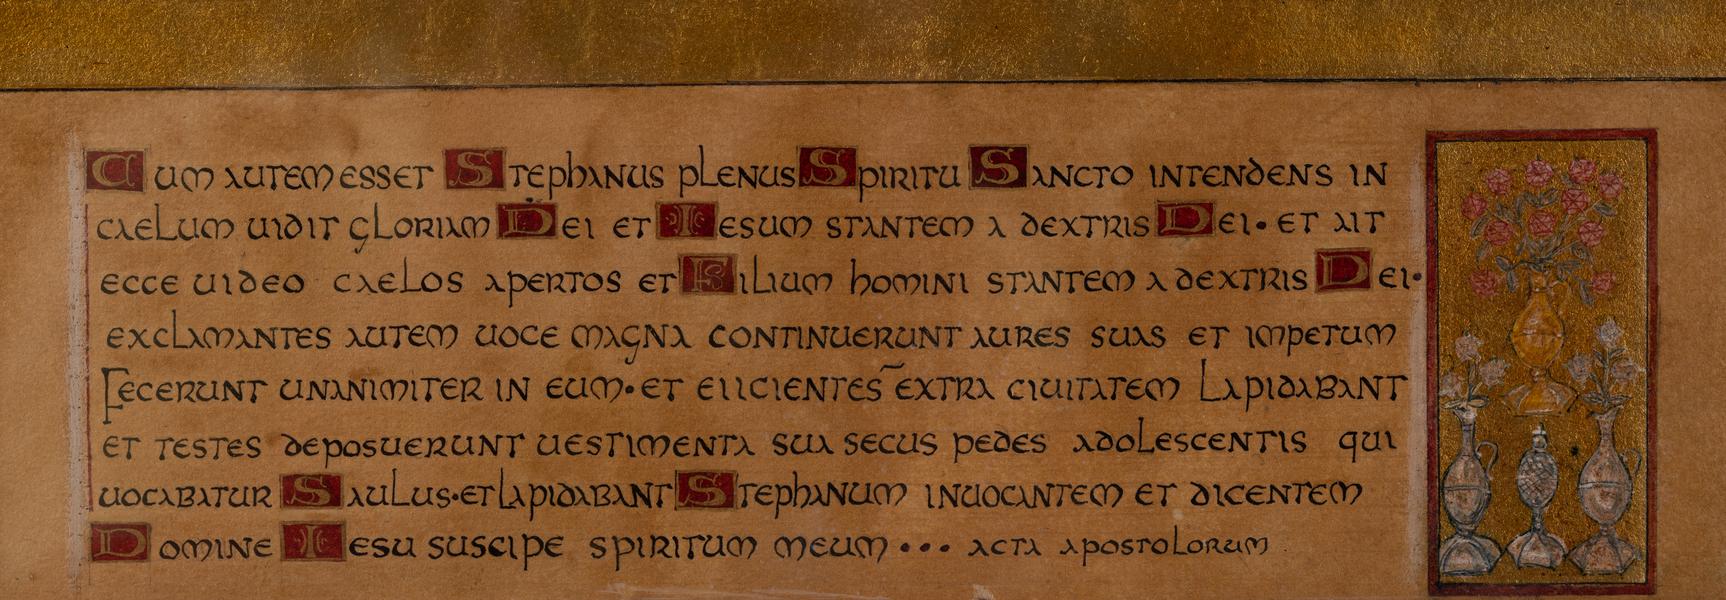 Cum autem esset Stephanus plenus Spiritu Sancto intendens in
caelum uidit gloriam Dei et Iesum stantem a dextris Dei • et ait
ecce uideo caelos apertos et Filium homini stantem a dextris Dei •
exclamantes autem uoce magna continuerunt aures suas et impetum
fecerunt unanimiter in eum • et eiicientes extra ciuitatem lapidabant
et testes deposuerunt uestimenta sua secus pedes adolescentis qui
uocabatur Saulus • et lapidabant Stephanum inuocantem et dicentem
Domine Iesu suscipe spiritum meum • • • acta apostolorum